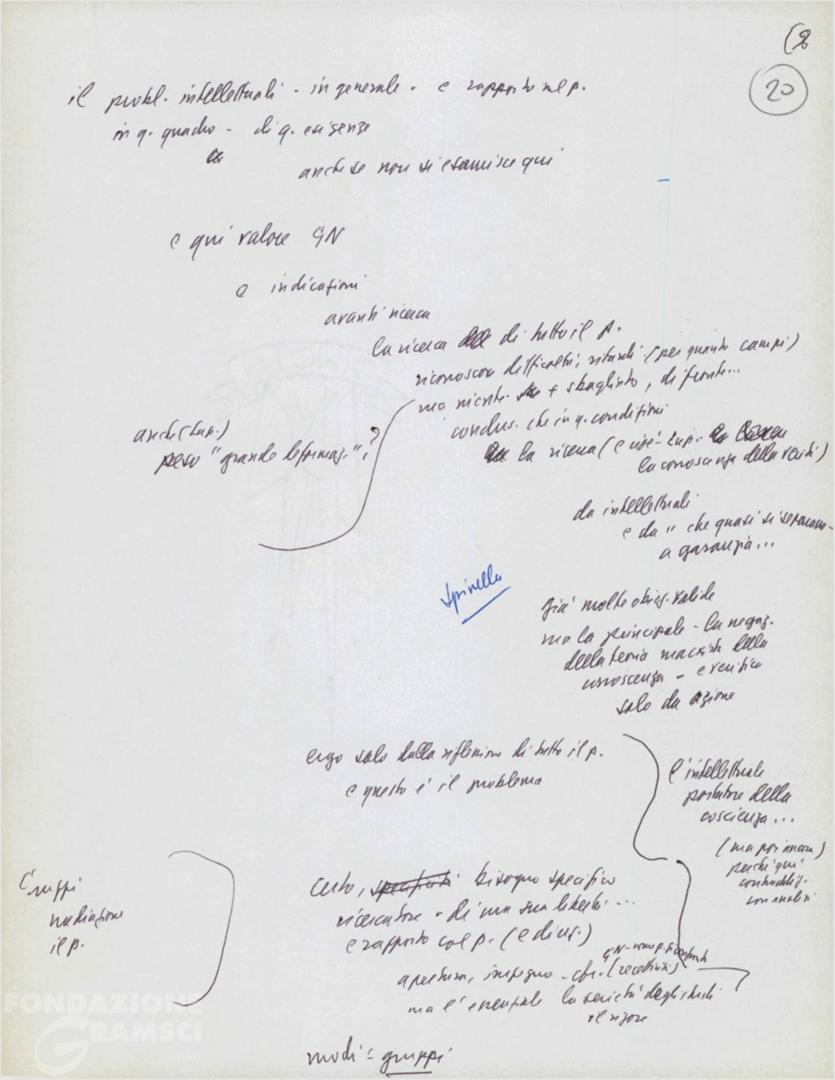 (2
20
il probl. intellettuali - in generale - e rapporto col p.
in q. quadro - di q. esigenze
anche se non si esaurisce qui
e qui valore GN
e indicazioni
avanti ricerca
la ricerca di tutto il p.
riconoscere difficoltà, ritardi (per quanto campi)
ma niente + sbagliato, di fronte...
conclus. che in q. condizioni
la ricerca (e cioè - Lup.
la conoscenza della verità)
anche (Lup.)
peso "grande
da intellettuali
e da " che quasi si separano
a garanzia...
Spinella
già molte obiez. valide
ma la principale - la negaz.
della teoria marxista della
conoscenza - e verifica
solo da azione
ergo solo dalla riflessione di tutto il p.
e questo è il problema
l'intellettuale
portatore della
coscienza...
(ma poi
perché qui
con analisi
Gruppi
mediazione
il p.
Certo, bisogno specifico
ricercatore - di una sua libertà...
e rapporto col p. (e
apertura, impegno - cfr.
ma l'essenziale la serietà degli studi
il rigore
modi = gruppi
FONDAZIONE
GRAMSCI